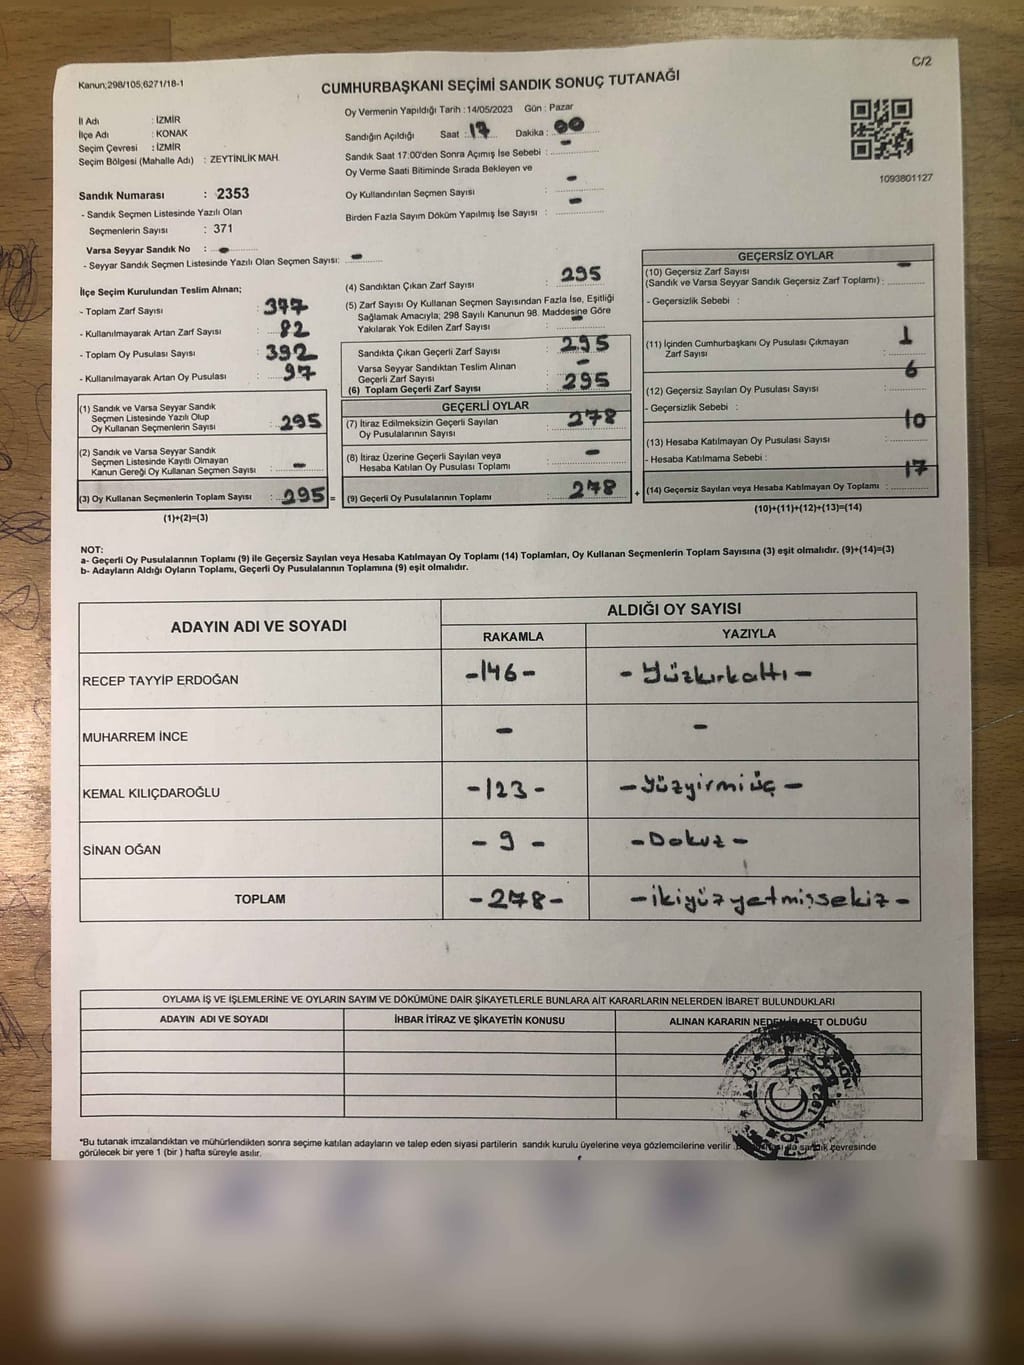 C/2
Kanun;298/105,6271/18-1
CUMHURBAŞKANI SEÇİMİ SANDIK SONUÇ TUTANAĞI
İl Adı : İZMİR
İlçe Adı : KONAK
Seçim Çevresi : İZMİR
Seçim Bölgesi (Mahalle Adı) : ZEYTİNLİK MAH.
Sandık Numarası : 2353
- Sandık Seçmen Listesinde Yazılı Olan
Seçmenlerin Sayısı : 371
Varsa Seyyar Sandık No : -
- Seyyar Sandık Seçmen Listesinde Yazılı Olan Seçmen Sayısı: -
Oy Vermenin Yapıldığı Tarih : 14/05/2023 Gün : Pazar
Sandığın Açıldığı Saat : 17 Dakika : 00
Sandık Saat 17:00'den Sonra Açımış İse Sebebi : -
Oy Verme Saati Bitiminde Sırada Bekleyen ve
Oy Kullandırılan Seçmen Sayısı : -
Birden Fazla Sayım Döküm Yapılmış İse Sayısı : -
1093801127
İlçe Seçim Kurulundan Teslim Alınan;
- Toplam Zarf Sayısı : 377
- Kullanılmayarak Artan Zarf Sayısı : 82
- Toplam Oy Pusulası Sayısı : 392
- Kullanılmayarak Artan Oy Pusulası : 97
(1) Sandık ve Varsa Seyyar Sandık
Seçmen Listesinde Yazılı Olup
Oy Kullanan Seçmenlerin Sayısı : 295
(2) Sandık ve Varsa Seyyar Sandık
Seçmen Listesinde Kayıtlı Olmayan
Kanun Gereği Oy Kullanan Seçmen Sayısı : -
(3) Oy Kullanan Seçmenlerin Toplam Sayısı : 295 =
(1)+(2)=(3)
(4) Sandıktan Çıkan Zarf Sayısı : 295
(5) Zarf Sayısı Oy Kullanan Seçmen Sayısından Fazla İse, Eşitliği
Sağlamak Amacıyla; 298 Sayılı Kanunun 98. Maddesine Göre
Yakılarak Yok Edilen Zarf Sayısı : -
Sandıkta Çıkan Geçerli Zarf Sayısı : 295
Varsa Seyyar Sandıktan Teslim Alınan
Geçerli Zarf Sayısı : -
(6) Toplam Geçerli Zarf Sayısı : 295
GEÇERLİ OYLAR
(7) İtiraz Edilmeksizin Geçerli Sayılan
Oy Pusulalarının Sayısı : 278
(8) İtiraz Üzerine Geçerli Sayılan veya
Hesaba Katılan Oy Pusulası Toplamı : -
(9) Geçerli Oy Pusulalarının Toplamı : 278 +
GEÇERSİZ OYLAR
(10) Geçersiz Zarf Sayısı
(Sandık ve Varsa Seyyar Sandık Geçersiz Zarf Toplamı) : -
- Geçersizlik Sebebi :
(11) İçinden Cumhurbaşkanı Oy Pusulası Çıkmayan
Zarf Sayısı : 1
(12) Geçersiz Sayılan Oy Pusulası Sayısı : 6
- Geçersizlik Sebebi :
(13) Hesaba Katılmayan Oy Pusulası Sayısı : 10
- Hesaba Katılmama Sebebi :
(14) Geçersiz Sayılan veya Hesaba Katılmayan Oy Toplamı : 17
(10)+(11)+(12)+(13)=(14)
NOT:
a- Geçerli Oy Pusulalarının Toplamı (9) ile Geçersiz Sayılan veya Hesaba Katılmayan Oy Toplamı (14) Toplamları, Oy Kullanan Seçmenlerin Toplam Sayısına (3) eşit olmalıdır. (9)+(14)=(3)
b- Adayların Aldığı Oyların Toplamı, Geçerli Oy Pusulalarının Toplamına (9) eşit olmalıdır.
ADAYIN ADI VE SOYADI
ALDIĞI OY SAYISI
RAKAMLA YAZIYLA
RECEP TAYYİP ERDOĞAN -146- -Yüzkırkaltı-
MUHARREM İNCE - -
KEMAL KILIÇDAROĞLU -123- -Yüzyirmiüç-
SİNAN OĞAN -9- -Dokuz-
TOPLAM -278- -ikiyüzyetmişsekiz-
OYLAMA İŞ VE İŞLEMLERİNE VE OYLARIN SAYIM VE DÖKÜMÜNE DAİR ŞİKAYETLERLE BUNLARA AİT KARARLARIN NELERDEN İBARET BULUNDUKLARI
ADAYIN ADI VE SOYADI İHBAR İTİRAZ VE ŞİKAYETİN KONUSU ALINAN KARARIN NEDEN İBARET OLDUĞU
*Bu tutanak imzalandıktan ve mühürlendikten sonra seçime katılan adayların ve talep eden siyasi partilerin sandık kurulu üyelerine veya gözlemcilerine verilir sandık çevresinde
görülecek bir yere 1 (bir ) hafta süreyle asılır.